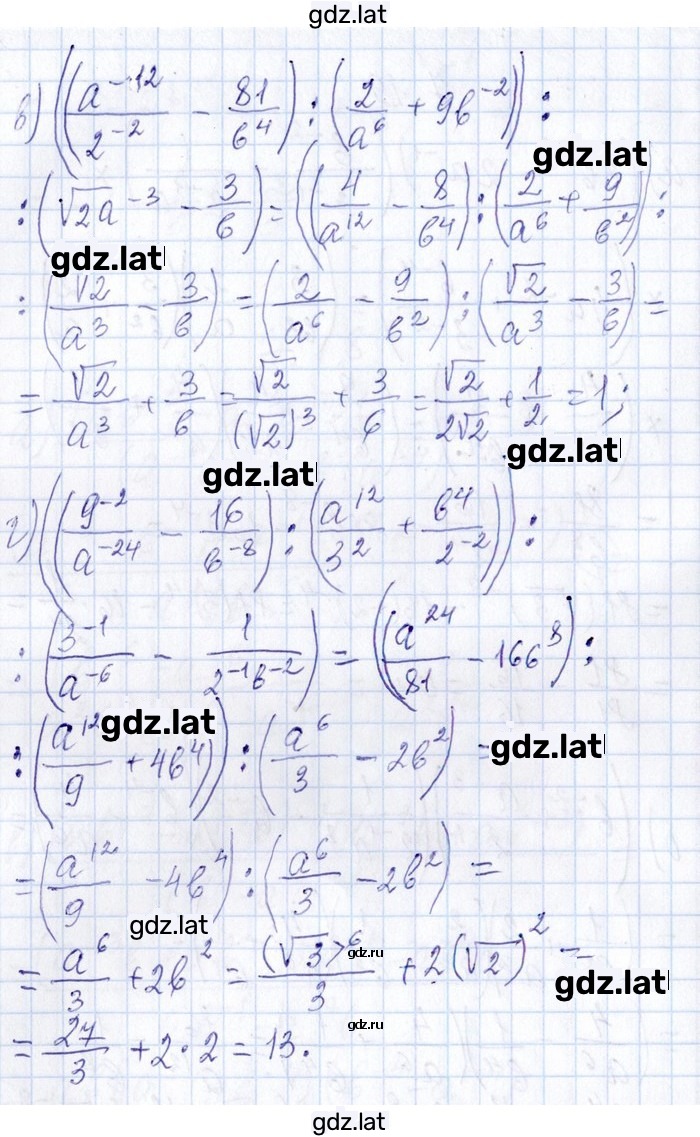 gdz.lat
в) ((a^{-12}/2^{-2} - 81/b^4) : (2/a^6 + 9b^{-2})) :
gdz.lat
: (√2a^{-3} - 3/b) = ((4/a^{12} - 8/b^4) : (2/a^6 + 9/b^2)) :
gdz.lat
: (√2/a^3 - 3/b) = (2/a^6 - 9/b^2) : (√2/a^3 - 3/b) =
= √2/a^3 + 3/b = √2/(√2)^3 + 3/6 = √2/2√2 + 1/2 = 1;
gdz.lat
gdz.lat
г) ((9^{-2}/a^{-24} - 16/b^{-8}) : (a^{12}/3^2 + b^4/2^{-2})) :
: (3^{-1}/a^{-6} - 1/2^{-1}b^{-2}) = ((a^{24}/81 - 16b^8) :
gdz.lat
: (a^{12}/9 + 4b^4)) : (a^6/3 - 2b^2) =
gdz.lat
= (a^{12}/9 - 4b^4) : (a^6/3 - 2b^2) =
gdz.lat
= a^6/3 + 2b^2 = (√3)^6/3 + 2(√2)^2 =
gdz.ru
gdz.lat
= 27/3 + 2·2 = 13.
gdz.ru
gdz.lat